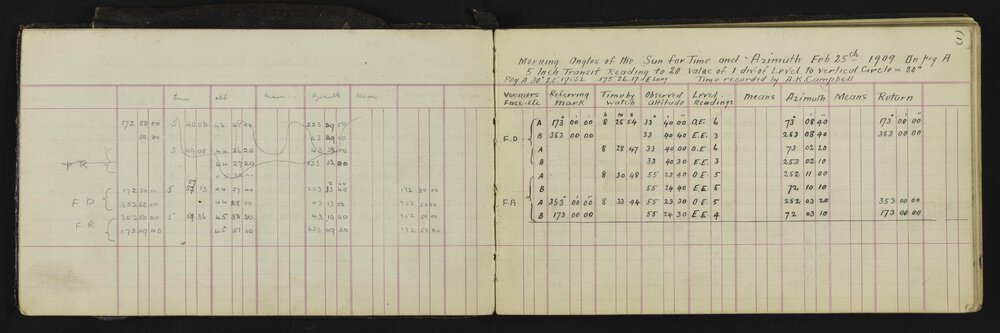 Time alt Mean Azimuth Mean
172 50 00 5 40 06 44 45 00 223 29 00
50 00 43 20 00
5 49 08 44 26 20
F R 44 27 20 223 21 00
172 50 00 5 13 44 27 40 223 40 172 50 00
F D 352 50 00 44 25 00 43 13 00 352 50 00
352 50 00 5 36 45 50 30 43 10 00 352 50 00
F R 172 49 40 45 51 20 223 09 20 172 50 00
Morning Angles of the Sun for Time and Azimuth Feb 25th 1909 On peg A
5 Inch Transit Reading to 20 Value of 1 div of Level to Vertical Circle = 20"
Peg A Time recorded by A.K. Campbell
Verniers Face etc Referring mark Time by watch Observed altitude Level Readings means Azimuth Means Return
h m s
A 173 00 00 8 25 54 33 40 00 O.E. 6 73 08 40 173 00 00
F.D B 353 00 00 33 40 40 E.E. 3 253 08 40 353 00 00
A 8 28 47 33 40 00 O.E. 6 73 02 20
B 33 40 30 E.E. 3 253 02 10
A 8 30 48 55 23 40 O.E. 5 252 11 00
B 55 24 40 E.E. 5 72 10 10
F.R. A 353 00 00 8 33 44 55 23 30 O.E. 5 252 03 20 353 00 00
B 173 00 00 55 24 30 E.E. 4 72 03 10 173 00 00